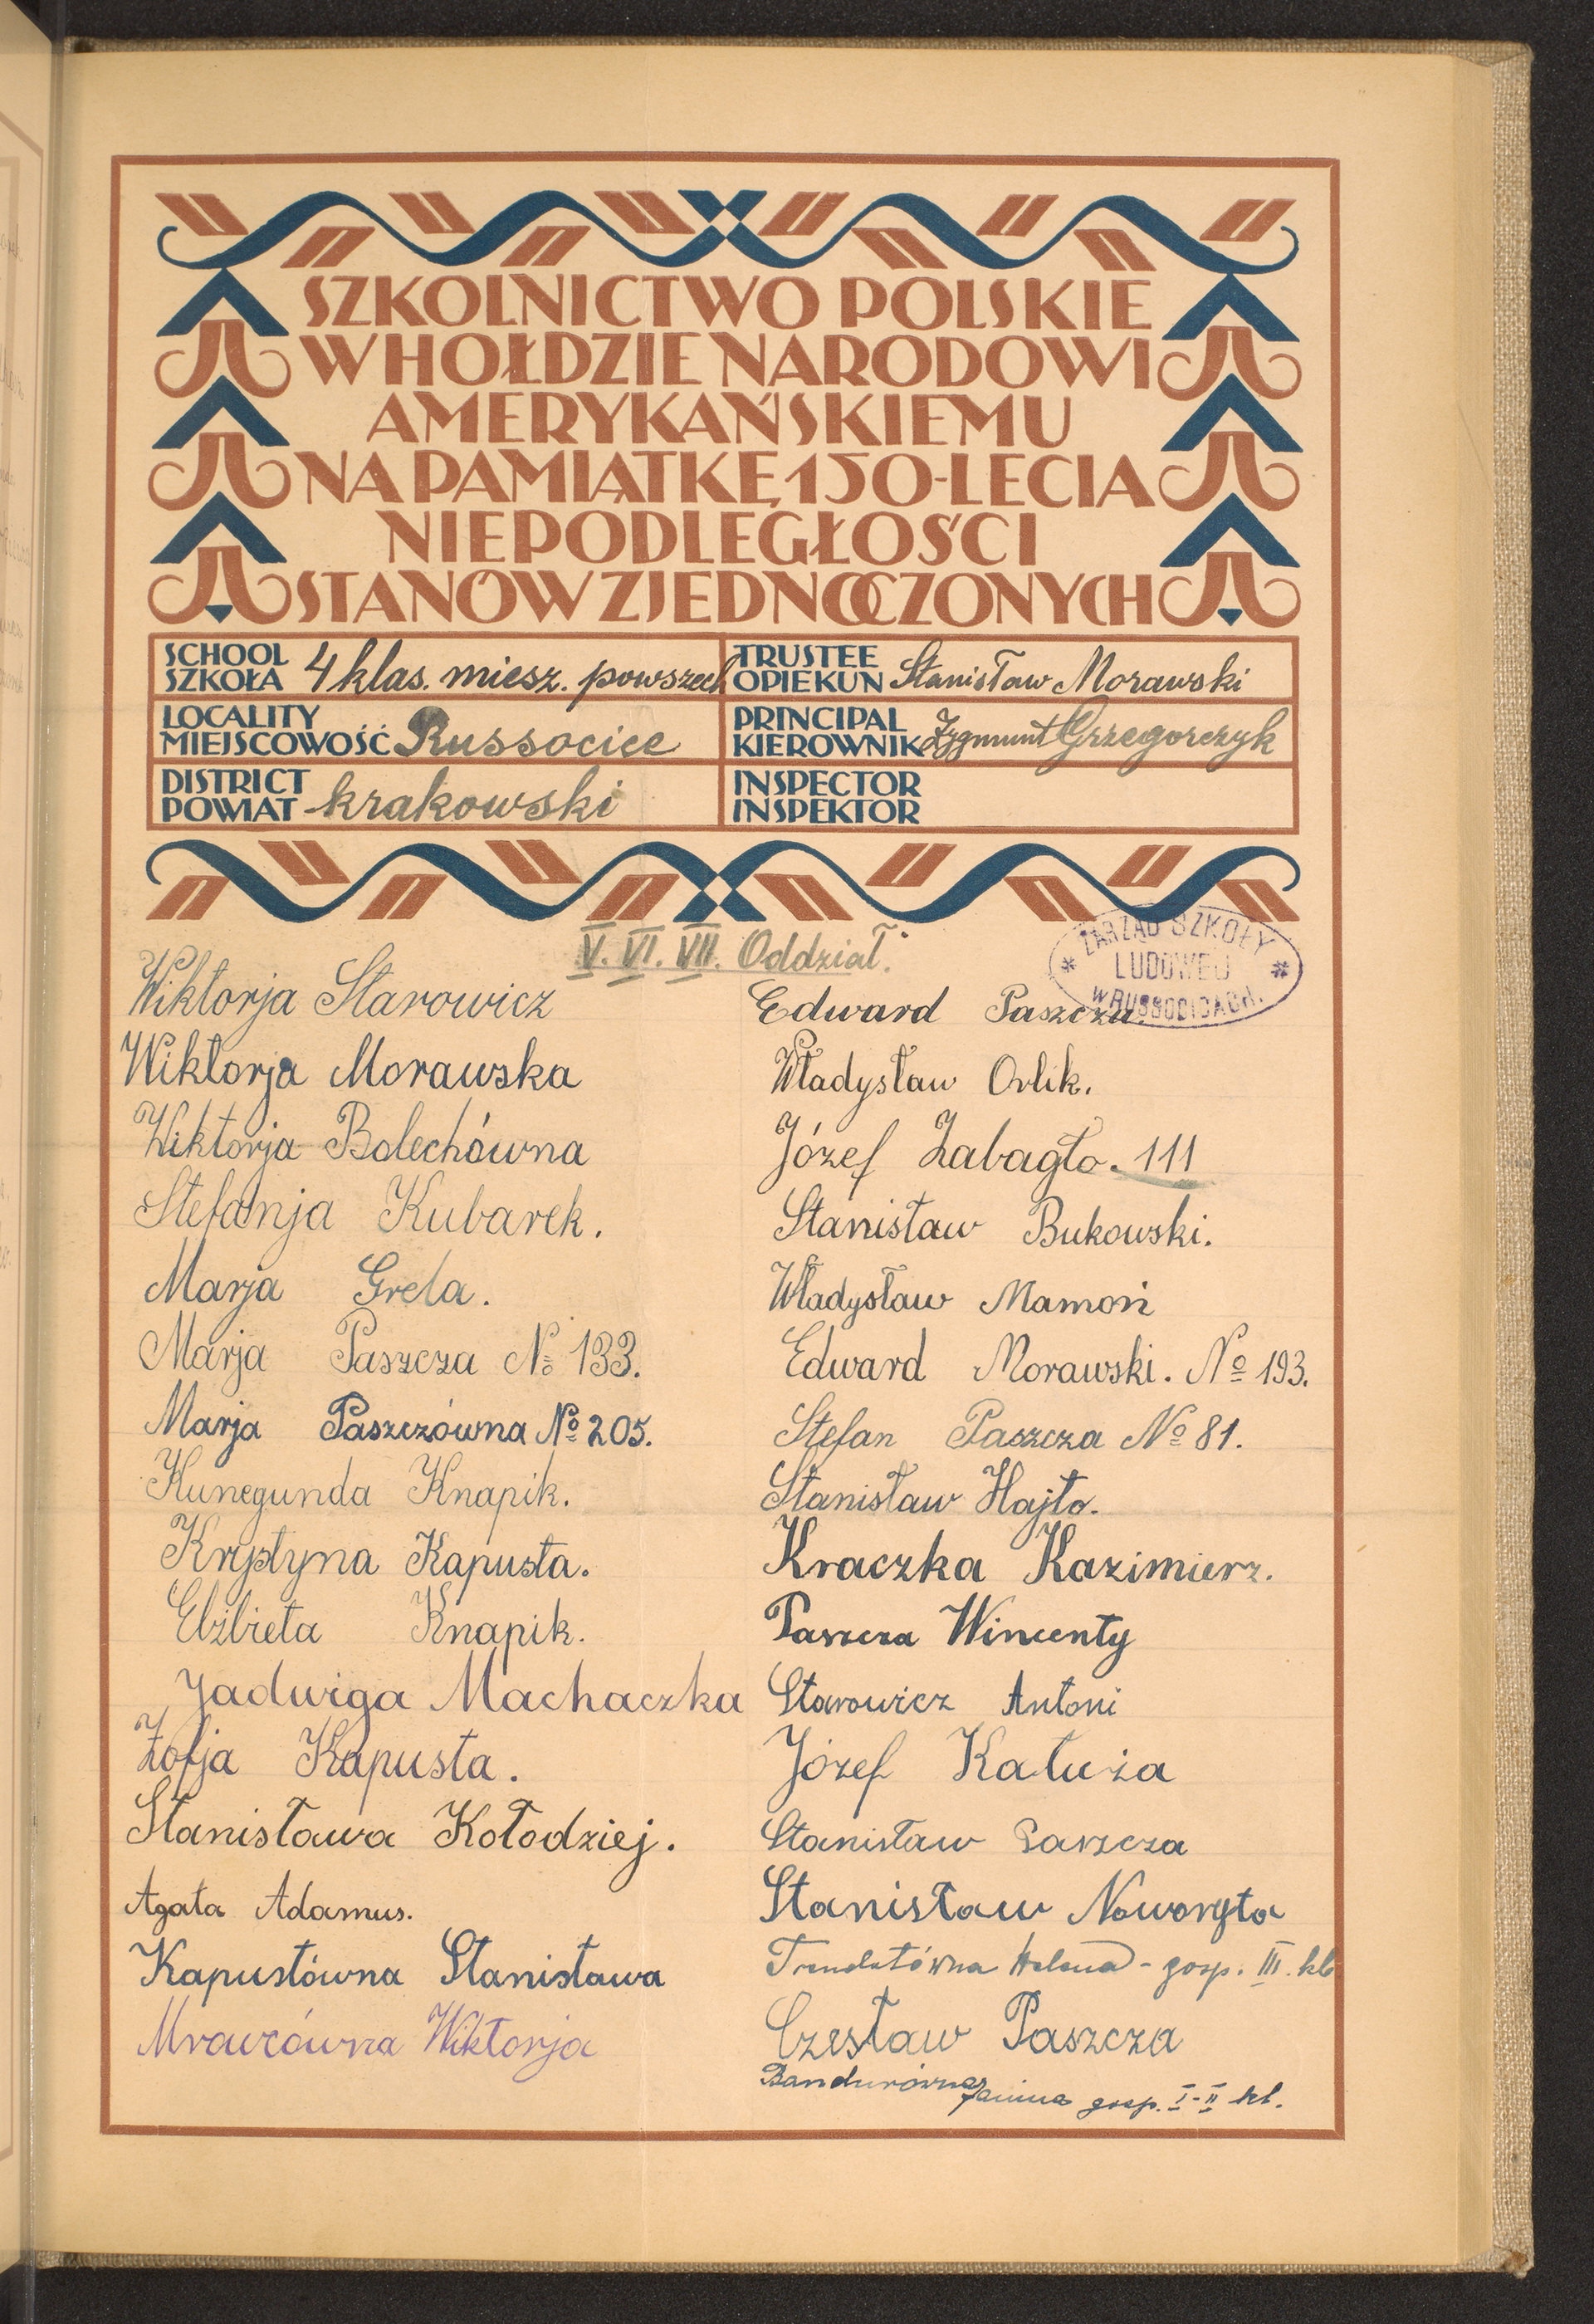 SZKOLNICTWO POLSKIE
W HOŁDZIE NARODOWI
AMERYKAŃSKIEMU
NA PAMIĄTKĘ 150-LECIA
NIEPODLEGŁOŚCI
STANÓW ZJEDNOCZONYCH
SCHOOL
SZKOŁA 4 klas. miesz. powszech
TRUSTEE
OPIEKUN Stanisław Morawski
LOCALITY
MIEJSCOWOŚĆ Russocice
PRINCIPAL
KIEROWNIK Zygmunt Grzegorczyk
DISTRICT
POWIAT krakowski
INSPECTOR
INSPEKTOR
V. VI. VII. Oddział.
ZARZĄD SZKOŁY
LUDOWEJ
W RUSSOCICACH.
Wiktorja Starowicz
Wiktorja Morawska
Wiktorja Bolechówna
Stefanja Kubarek.
Marja Grela.
Marja Paszcza No 133.
Marja Paszczówna No 205.
Kunegunda Knapik.
Krystyna Kapusta.
Elżbieta Knapik.
Jadwiga Machaczka
Zofja Kapusta.
Stanisława Kołodziej.
Agata Adamus.
Kapustówna Stanisława
Mrawcówna Wiktorja
Edward Paszcza.
Władysław Orlik.
Józef Zabagło. 111
Stanisław Bukowski.
Władysław Mamoń
Edward Morawski. No 193.
Stefan Paszcza No 81.
Stanisław Hajto.
Kraczka Kazimierz.
Paszcza Wincenty
Starowicz Antoni
Józef Kałuża
Stanisław Paszcza
Stanisław Noworyta
Helena - gosp. III. kl
Czesław Paszcza
Bandurówna Janina gosp. I-II kl.